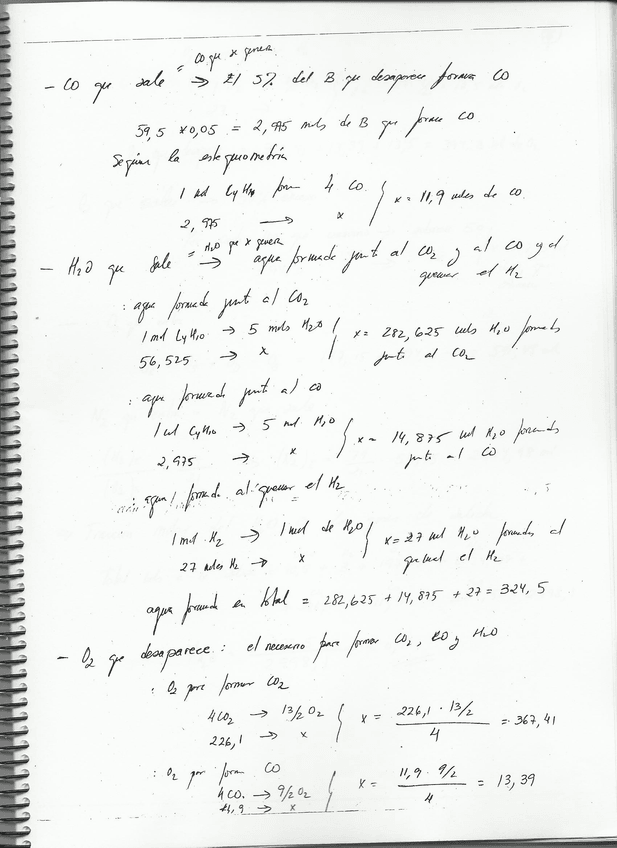 = CO que x genera
- CO que sale → El 5% del B que desaparece forma CO
59,5 x 0,05 = 2,975 mols de B que forma CO
Según la estequiometría
1 mol C4H10 form 4 CO.
2,975 → x
x = 11,9 moles de CO.
= H2O que x genera
- H2O que sale → agua formada junto al CO2 y al CO y al
quemar el H2
: agua formada junto al CO2
1 mol C4H10 → 5 mols H2O
56,525 → x
x = 282,625 mols H2O formados
junto al CO2
: agua formada junto al CO
1 mol C4H10 → 5 mol H2O
2,975 → x
x = 14,875 mol H2O formados
junto al CO
: agua formada al quemar el H2
1 mol H2 → 1 mol de H2O
27 moles H2 → x
x = 27 mol H2O formados al
quemar el H2
agua formada en total = 282,625 + 14,875 + 27 = 324,5
- O2 que desaparece: el necesario para formar CO2, CO y H2O
: O2 para formar CO2
4CO2 → 13/2 O2
226,1 → x
x = 226,1 · 13/2 / 4 = 367,41
: O2 por form CO
4CO. → 9/2 O2
11,9 → x
x = 11,9 · 9/2 / 4 = 13,39